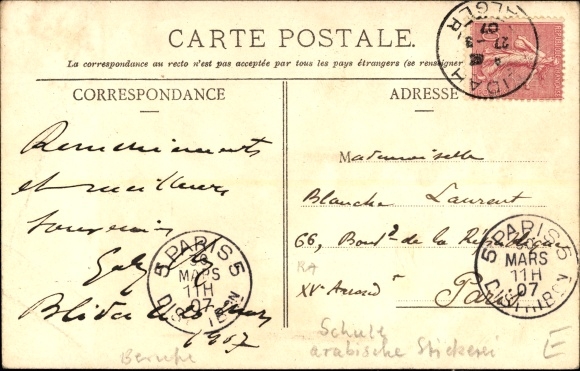 CARTE POSTALE.
La correspondance au recto n'est pas acceptée par tous les pays étrangers (se renseigner
CORRESPONDANCE
ADRESSE
Remerciements
et meilleurs
souvenirs
Blida le
1907
Mademoiselle
Blanche Laurent
66, Boul.d de la République
XVe Arrond.r
Paris
PARIS
5 5
MARS
11H
07
DISTRIBON
5 PARIS 5
MARS
11H
07
DISTRIBON
BLIDAH
ALGER
27
07
RA
Berufe
Schule
arabische Stickerei
E